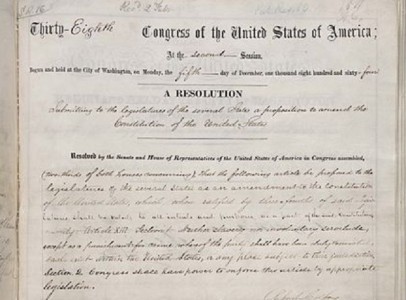 Thirty-Eighth Congress of the United States of America;
At the second Session,
Begun and held at the City of Washington, on Monday, the fifth day of December, one thousand eight hundred and sixty-four
A RESOLUTION
Submitting to the legislatures of the several States a proposition to amend the
Constitution of the United States.
Resolved by the Senate and House of Representatives of the United States of America in Congress assembled,
(two-thirds of both houses concurring), that the following article be proposed to the
legislatures of the several states as an amendment to the constitution
of the United States, which, when ratified by three-fourths of said
shall be valid, to all intents and purposes, as a part of the said constitution
namely: Article XIII. Section 1. Neither slavery nor involuntary servitude,
except as a punishment for crime whereof the party shall have been duly convicted,
shall exist within the United States, or any place subject to their jurisdiction.
Section 2. Congress shall have power to enforce this article by appropriate
legislation.